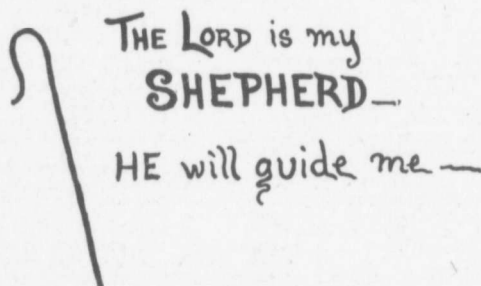 THE LORD is my
SHEPHERD—
HE will guide me—